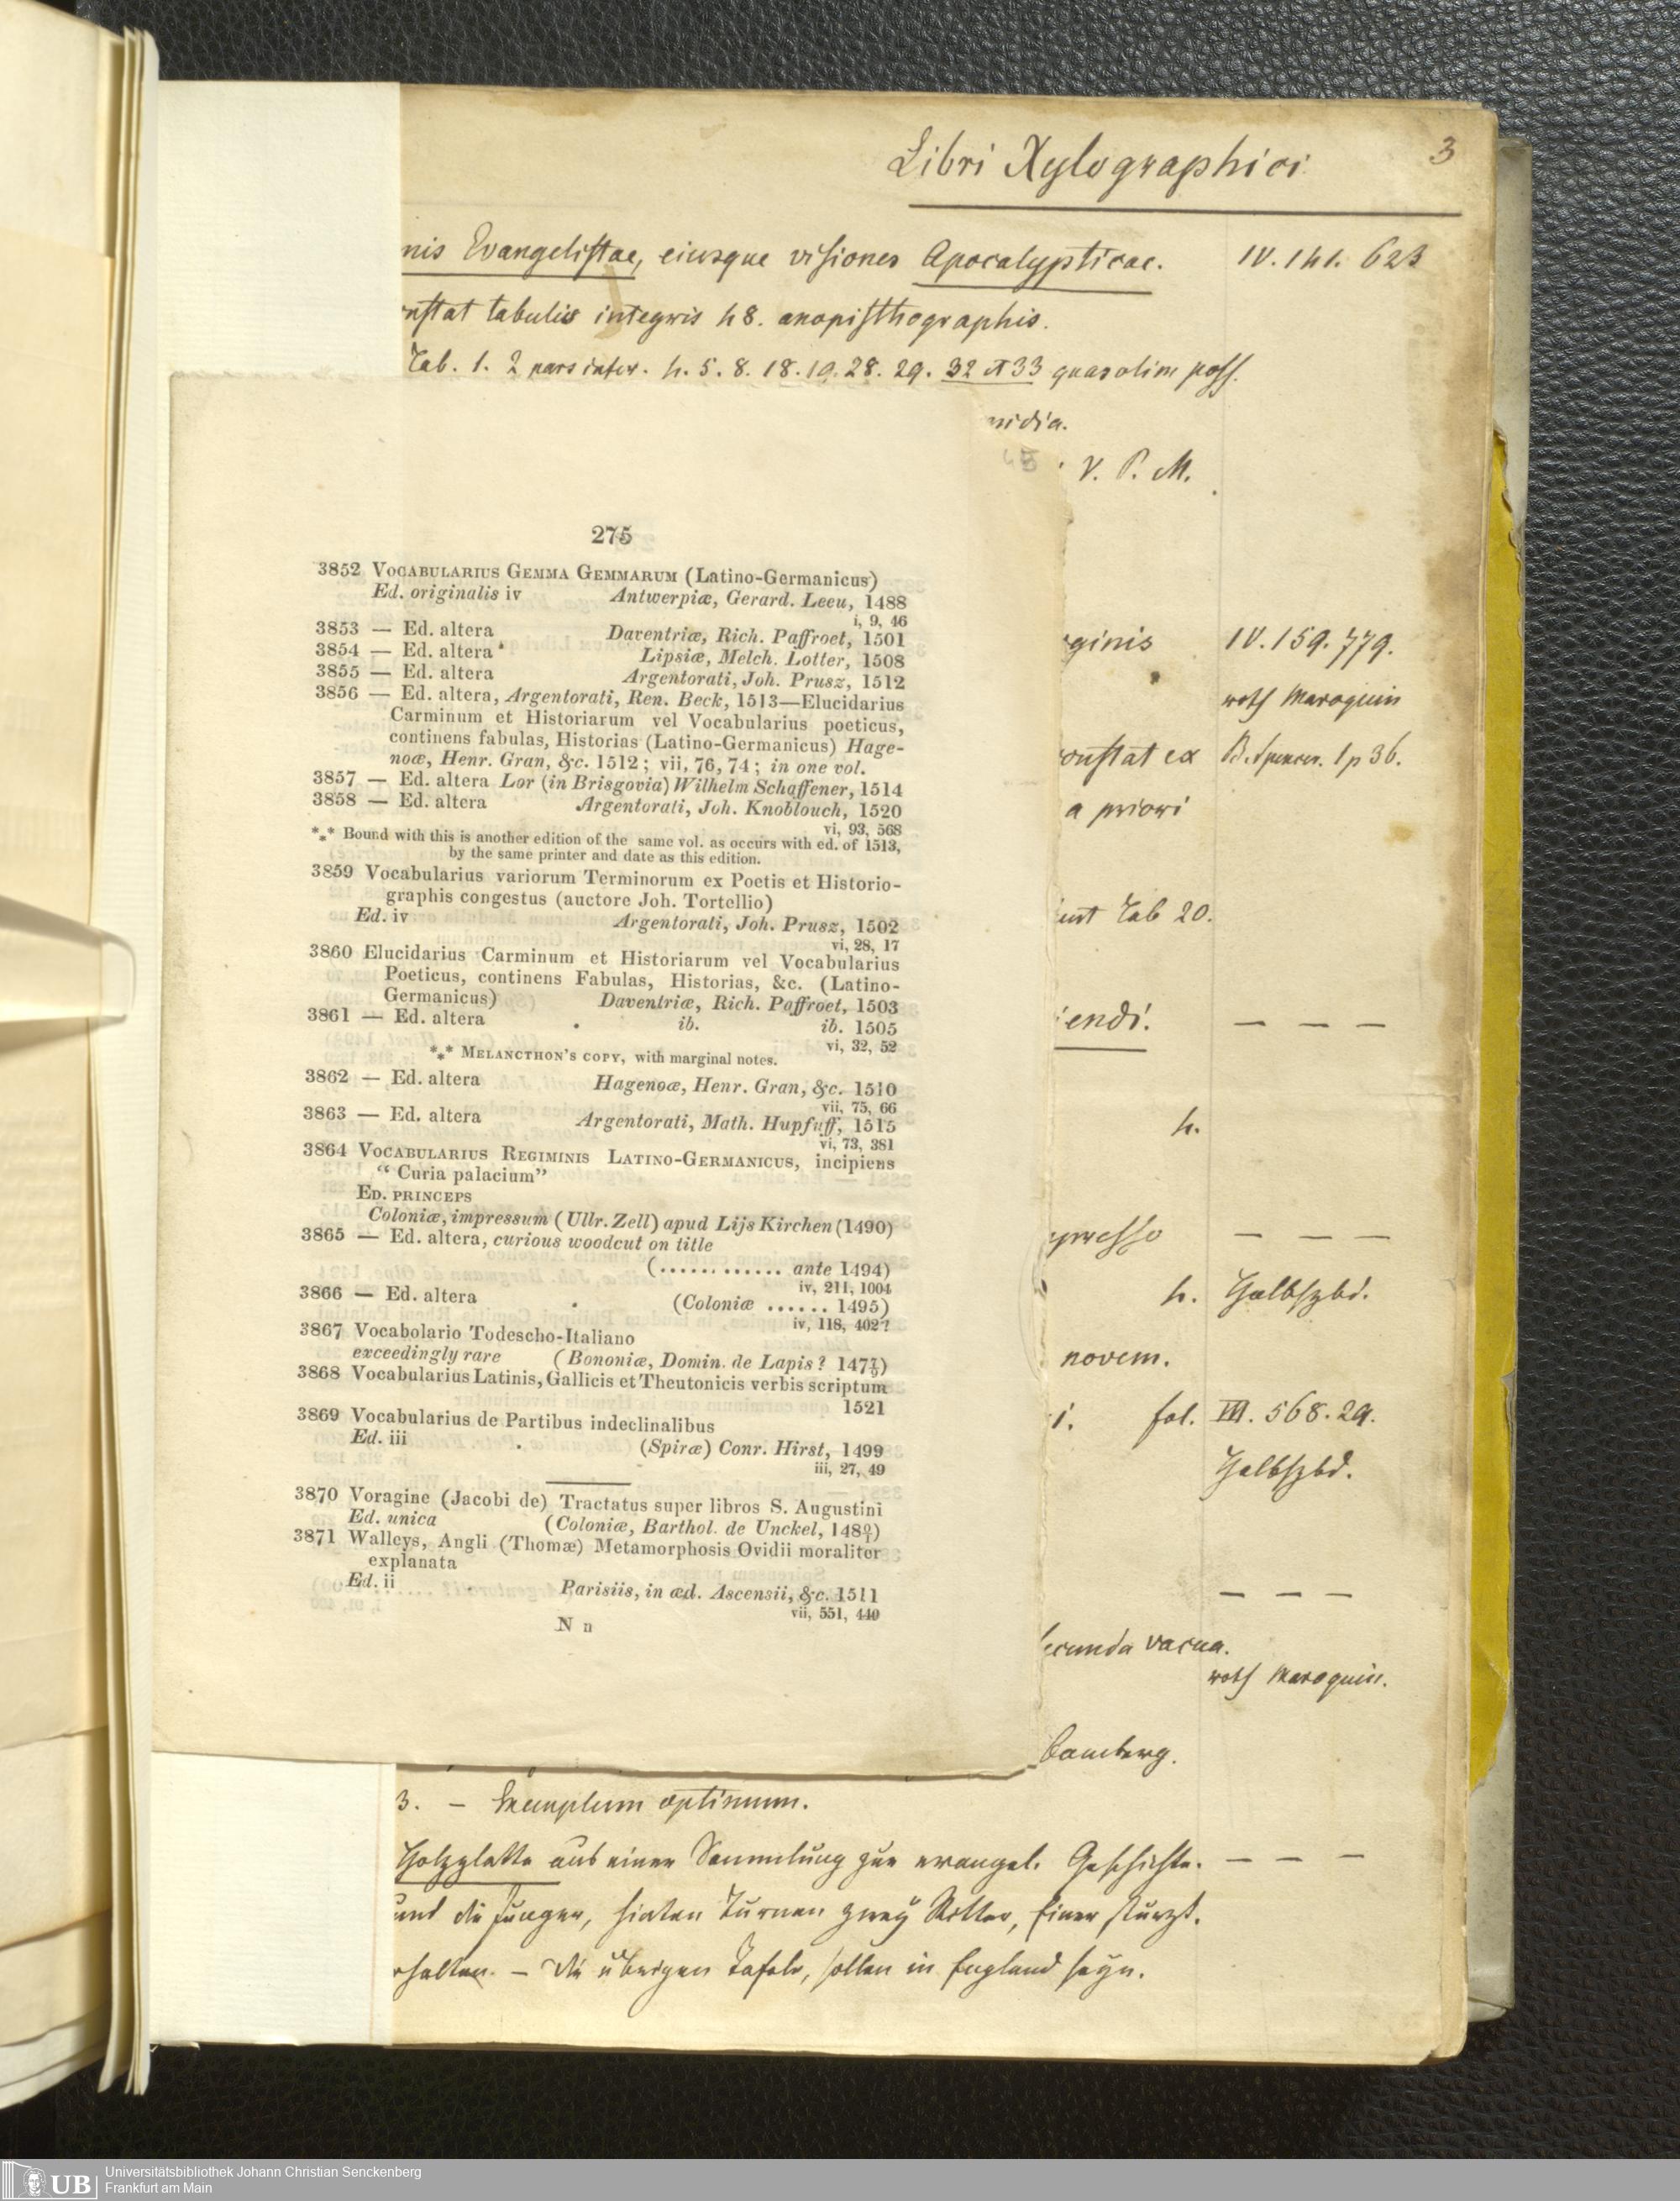 Libri Xylographici
3
nis Evangelistae, eiusque visiones Apocalypticae. IV. 141. 623
nstat tabulis integris 48. anopisthographis.
Tab. 1. 2 pars infer. 4. 5. 8. 18. 19. 28. 29. 32 et 33 quas olim poss.
nidia.
45
V. P. M.
275
3852 Vocabularius Gemma Gemmarum (Latino-Germanicus)
Ed. originalis iv Antwerpiæ, Gerard. Leeu, 1488
i, 9, 46
3853 — Ed. altera Daventriæ, Rich. Paffroet, 1501
3854 — Ed. altera Lipsiæ, Melch. Lotter, 1508
3855 — Ed. altera Argentorati, Joh. Prusz, 1512
3856 — Ed. altera, Argentorati, Ren. Beck, 1513—Elucidarius
Carminum et Historiarum vel Vocabularius poeticus,
continens fabulas, Historias (Latino-Germanicus) Hage-
noæ, Henr. Gran, &c. 1512; vii, 76, 74; in one vol.
3857 — Ed. altera Lor (in Brisgovia) Wilhelm Schaffener, 1514
3858 — Ed. altera Argentorati, Joh. Knoblouch, 1520
vi, 93, 568
*** Bound with this is another edition of the same vol. as occurs with ed. of 1513,
by the same printer and date as this edition.
3859 Vocabularius variorum Terminorum ex Poetis et Historio-
graphis congestus (auctore Joh. Tortellio)
Ed. iv Argentorati, Joh. Prusz, 1502
vi, 28, 17
3860 Elucidarius Carminum et Historiarum vel Vocabularius
Poeticus, continens Fabulas, Historias, &c. (Latino-
Germanicus) Daventriæ, Rich. Paffroet, 1503
3861 — Ed. altera . ib. ib. 1505
vi, 32, 52
*** Melancthon's copy, with marginal notes.
3862 — Ed. altera Hagenoæ, Henr. Gran, &c. 1510
vii, 75, 66
3863 — Ed. altera Argentorati, Math. Hupfuff, 1515
vi, 73, 381
3864 Vocabularius Regiminis Latino-Germanicus, incipiens
“Curia palacium”
Ed. princeps
Coloniæ, impressum (Ullr. Zell) apud Lijs Kirchen (1490)
3865 — Ed. altera, curious woodcut on title
(............ ante 1494)
iv, 211, 1004
3866 — Ed. altera . (Coloniæ ...... 1495)
iv, 118, 402?
3867 Vocabolario Todescho-Italiano
exceedingly rare (Bononiæ, Domin. de Lapis? 147 7/9)
3868 Vocabularius Latinis, Gallicis et Theutonicis verbis scriptum
1521
3869 Vocabularius de Partibus indeclinalibus
Ed. iii . (Spiræ) Conr. Hirst, 1499
iii, 27, 49
3870 Voragine (Jacobi de) Tractatus super libros S. Augustini
Ed. unica (Coloniæ, Barthol. de Unckel, 148 0/1)
3871 Walleys, Angli (Thomæ) Metamorphosis Ovidii moraliter
explanata
Ed. ii . Parisiis, in æd. Ascensii, &c. 1511
vii, 551, 440
N n
ginis IV. 159. 779.
roth Maroquin
onstat ex B. Spencer. 1 p 36.
a priori
unt Tab 20.
endi. — — —
4.
presso — — —
4. Halbfzbd.
novem.
i. fol. III. 568. 29.
Halbfzbd.
— — —
secunda vacua.
roth Maroquin.
Bamberg.
3. — Exemplum optimum.
Holzplatte aus einer Sammlung zur evangel. Geschichte. — — —
und die Jünger, hinten Turnen zwey Ritter, Einer stürzt.
rhalten. — Die übrigen Tafeln, sollen in England seyn.
UB
Universitätsbibliothek Johann Christian Senckenberg
Frankfurt am Main